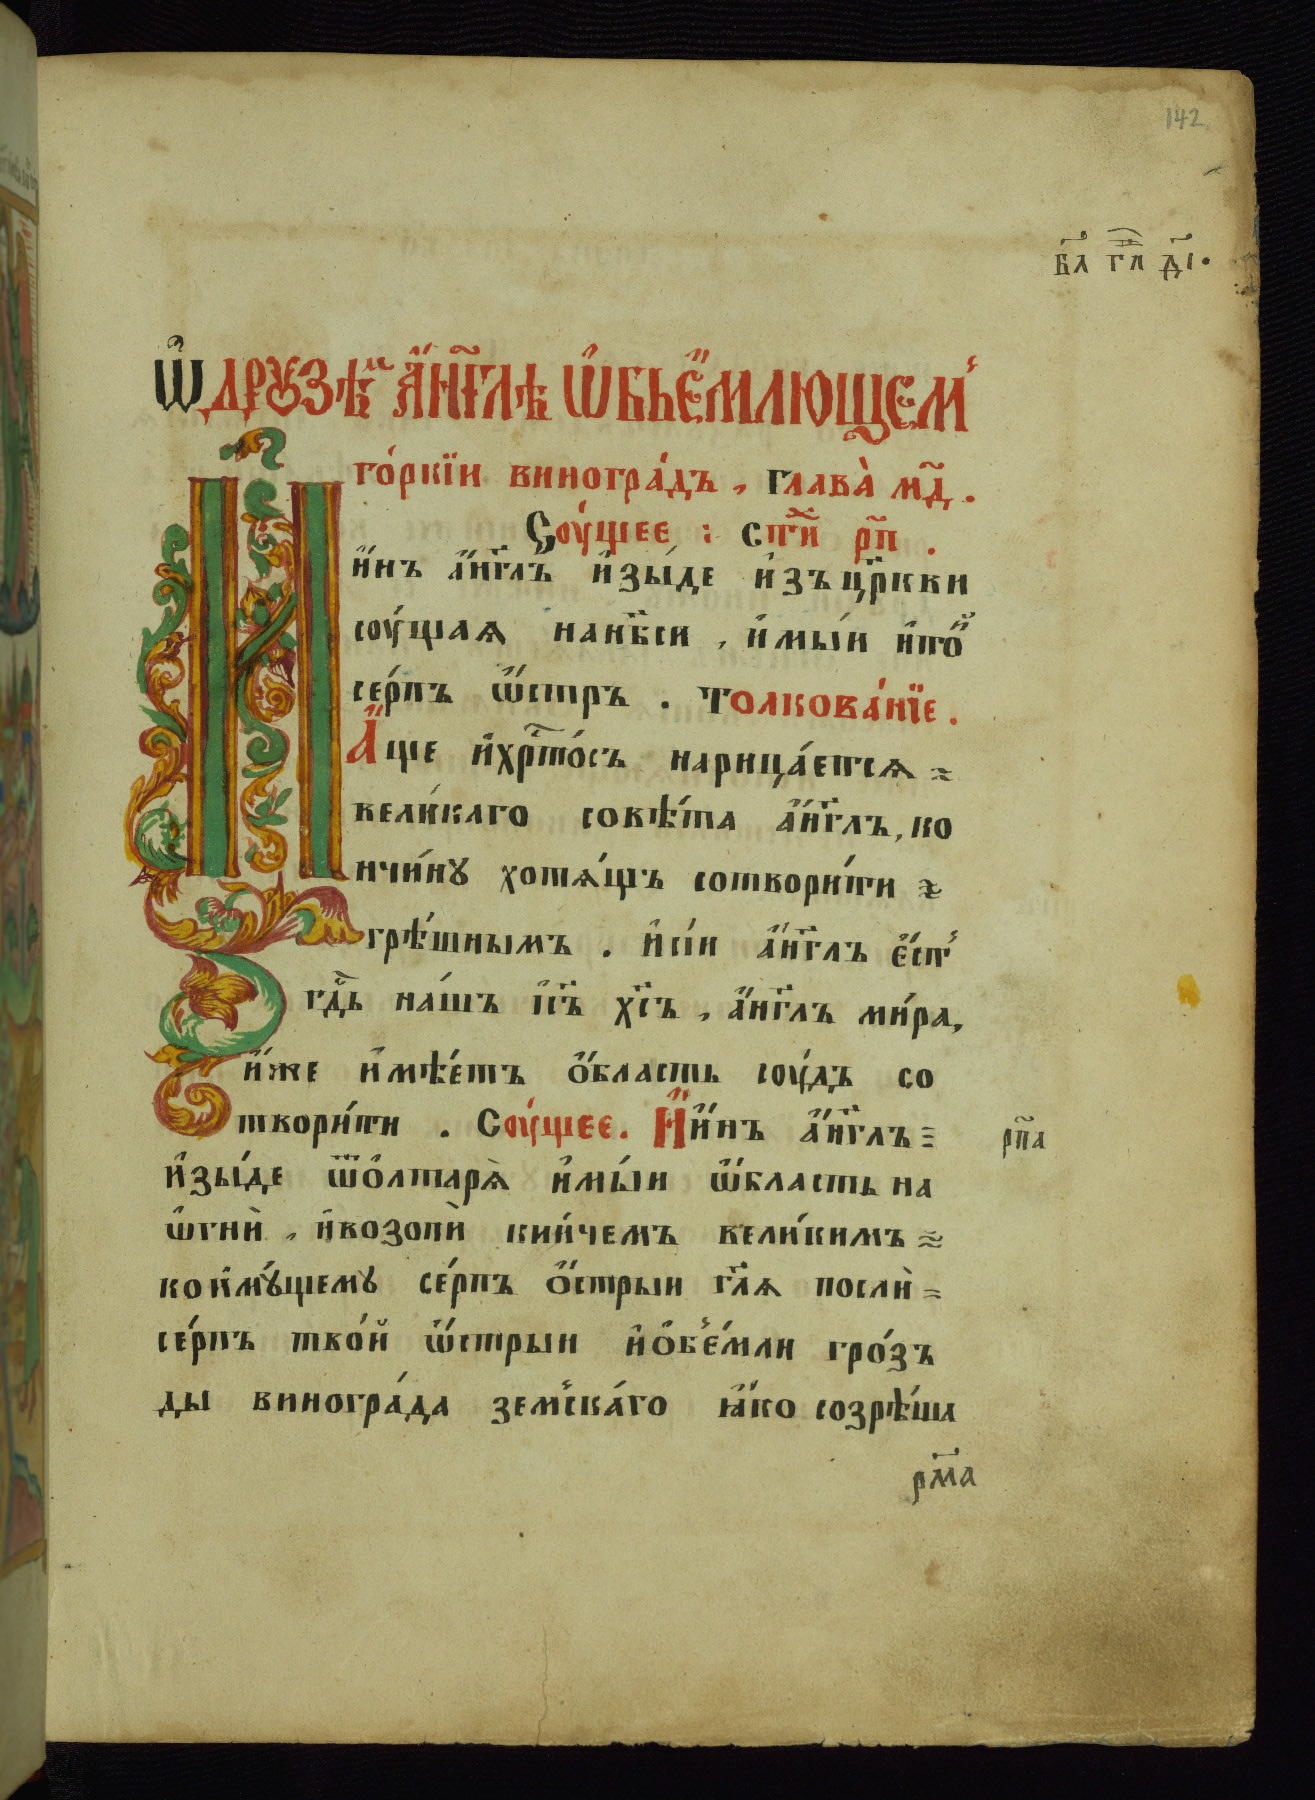 142
в҃л гл҃ д҃і.
Ѡ҆ дрꙋзѣм А҆́нг҃лѣ Ѡ҆бье҆́млющем
го́ркїи виногра́дъ , глава̀ м҃д .
Соу́щее : ст҃и р҃п .
и҆́нъ а҆́нг҃лъ и҆зы́де и҆зъ цр҃кви
соу́щаѧ нанб҃си , и҆мы́и и҆то́й
се́рпъ ѡ҆́стръ . толкова́нїе .
А҆́ще и҆хрⷭ҇то́съ нарица́етсѧ
вели́каго совѣ́та а҆́нг҃лъ, ко
нчи́нꙋ хотѧ́щъ сотвори́ти
грѣ́шнымъ . и҆сі́и а҆́нг҃лъ є҆́ст
гдⷭ҇ь на́шъ іс҃ъ хс҃ъ , а҆́нг҃лъ ми́ра,
и҆́же и҆мѣ́етъ ѻ҆́бласть соу́дъ со
твори́ти . Соу́щее. И҆и҆́нъ а҆́нг҃лъ
и҆зы́де ѿѻ҆лтарѧ̀ и҆мы́и ѡ҆́бласть на
ѡ҆гнѝ , и҆возопѝ кли́чемъ вели́кимъ
коимꙋ́щемꙋ се́рпъ ѻ҆́стрыи гл҃ѧ послѝ
се́рпъ тво́й ѡ҆́стрыи и҆ѻ҆бе́мли гро́зъ
ды виногра́да земска́го ꙗ҆́ко созрѣ́ша
рп҃а
рм҃а